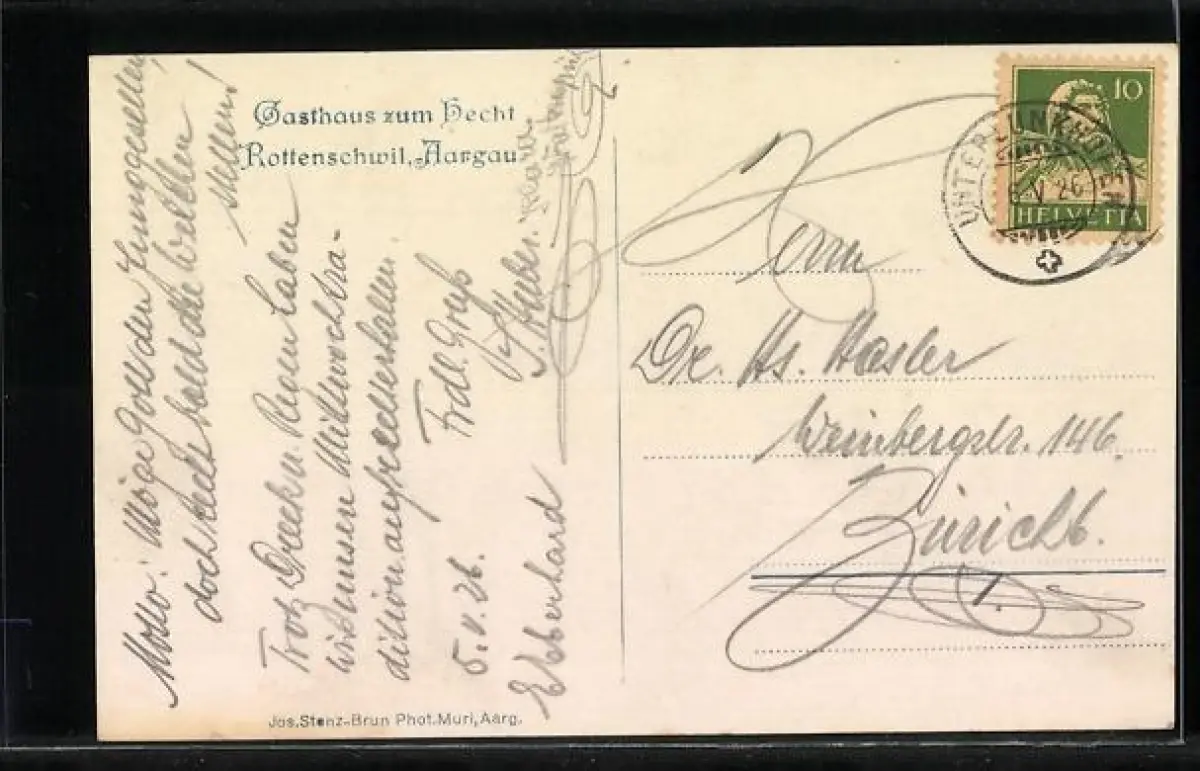 Gasthaus zum Hecht
Rottenschwil, Aargau
Motto: Möge Gott den Junggesellen
doch recht bald die Welten
stellen!
Trotz Dreck u. Regen haben
wir unsere Mittwochtra-
dition aufrecht erhalten
Frdl. Gruss
A. Huber.
5. V. 26.
E Eberhard
10
HELVETIA
UNTERLUNKHOFEN
V 26
Herrn
Dr. Hs. Hasler
Weinbergstr. 146.
Zürich 6.
Jos. Stenz-Brun Phot. Muri, Aarg.